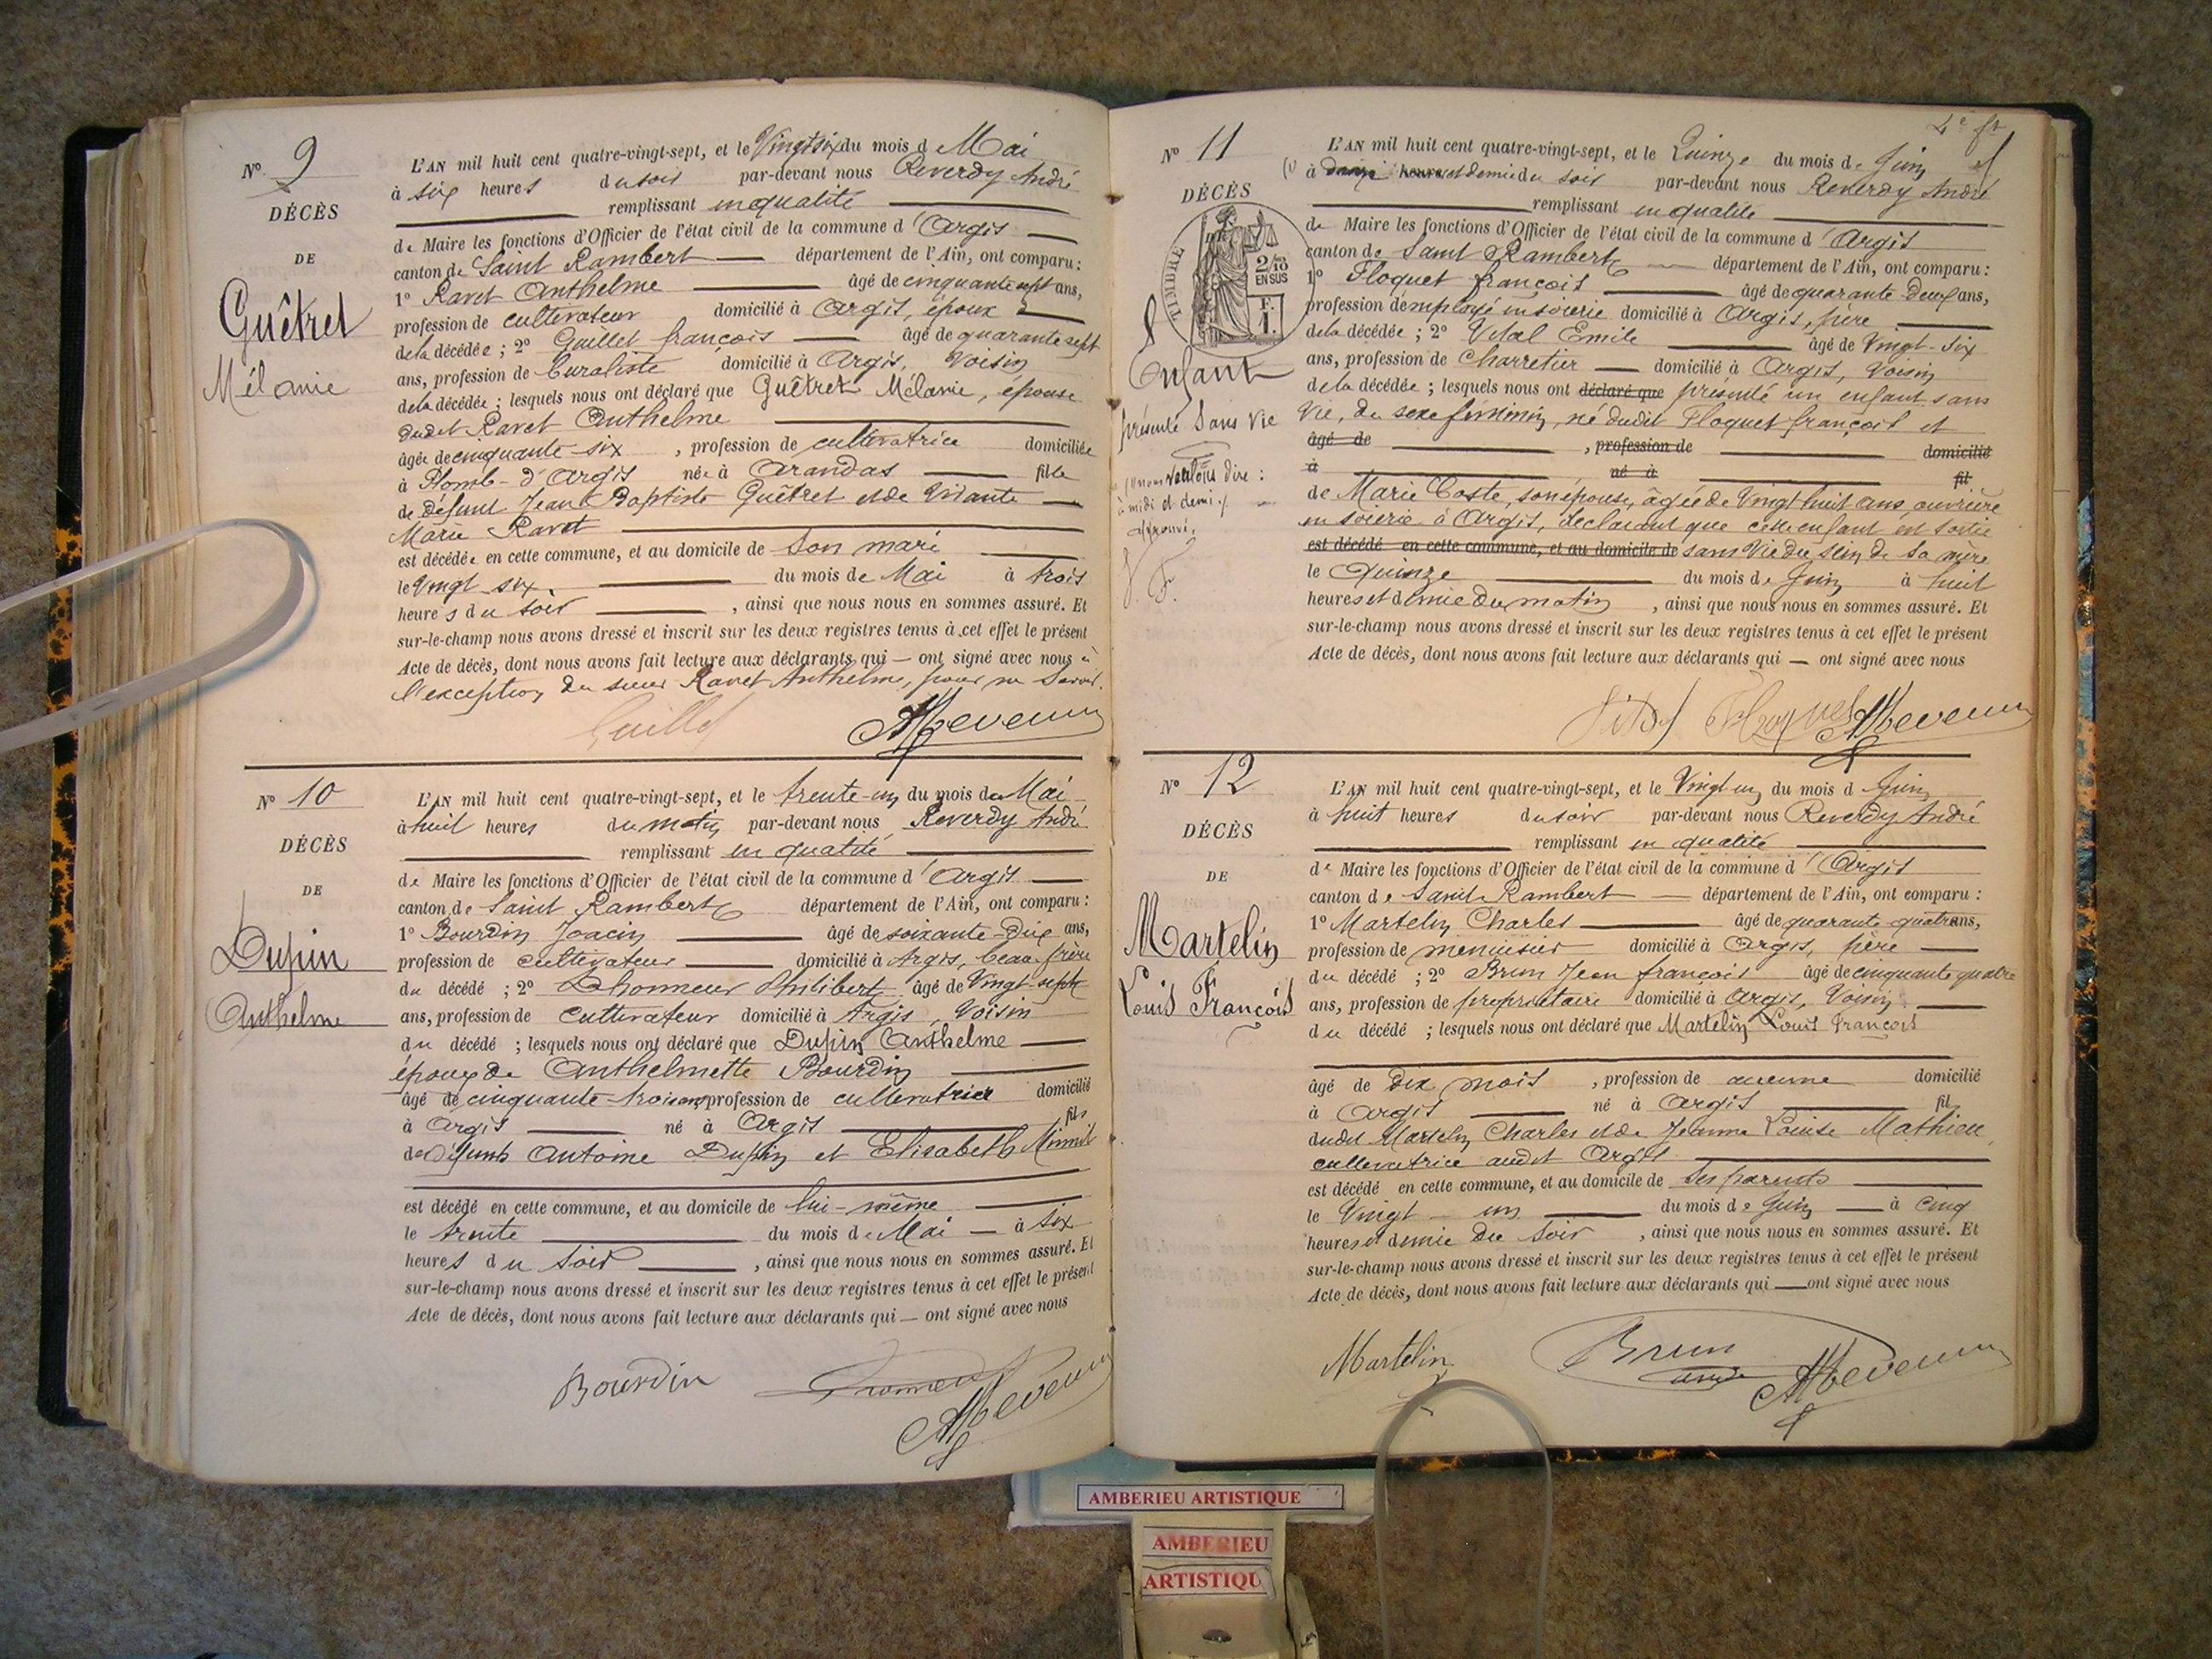 N° 9
DÉCÈS
DE
Guêtret
Mélanie
L'AN mil huit cent quatre-vingt-sept, et le Vingt six du mois de Mai
à six heures du soir par-devant nous Reverdy André
remplissant en qualité
de Maire les fonctions d'Officier de l'état civil de la commune d'Argis
canton de Saint Rambert département de l'Ain, ont comparu :
1° Ravet Anthelme âgé de cinquante sept ans,
profession de cultivateur domicilié à Argis, époux
de la décédée ; 2° Guillet françois âgé de quarante sept
ans, profession de buraliste domicilié à Argis, Voisin
de la décédée ; lesquels nous ont déclaré que Guêtret Mélanie, épouse
dudit Ravet Anthelme
âgée de cinquante-six, profession de cultivatrice domiciliée
à Plomb-d'Argis née à Arandas fille
de Défunt Jean Baptiste Guêtret et de Vivante
Marie Ravet
est décédée en cette commune, et au domicile de Son mari
le Vingt six du mois de Mai à trois
heures du soir, ainsi que nous nous en sommes assuré. Et
sur-le-champ nous avons dressé et inscrit sur les deux registres tenus à cet effet le présent
Acte de décès, dont nous avons fait lecture aux déclarants qui — ont signé avec nous à
l'exception du sieur Ravet Anthelme, pour ne savoir.
Guillet
N° 10
DÉCÈS
DE
Dupin
Anthelme
L'AN mil huit cent quatre-vingt-sept, et le trente-un du mois de Mai
à huit heures du matin par-devant nous Reverdy André
remplissant en qualité
de Maire les fonctions d'Officier de l'état civil de la commune d'Argis
canton de Saint Rambert département de l'Ain, ont comparu :
1° Bourdin Joacin âgé de soixante-Dix ans,
profession de cultivateur domicilié à Argis, beau frère
du décédé ; 2° Dhonneur Philibert âgé de Vingt-sept
ans, profession de cultivateur domicilié à Argis, Voisin
du décédé ; lesquels nous ont déclaré que Dupin Anthelme
époux de Anthelmette Bourdin
âgé de cinquante-trois ans profession de cultivatrice domicilié
à Argis né à Argis fils
de Défunts Antoine Dupin et Elisabeth
est décédé en cette commune, et au domicile de lui-même
le trente du mois de Mai — à six
heures du soir, ainsi que nous nous en sommes assuré. Et
sur-le-champ nous avons dressé et inscrit sur les deux registres tenus à cet effet le présent
Acte de décès, dont nous avons fait lecture aux déclarants qui — ont signé avec nous
Bourdin
N° 11
DÉCÈS
TIMBRE
2/10
EN SUS
F.
1.
Enfant
présenté Sans Vie
nous voulons dire :
à midi et demi
Approuvé.
V. F.
L'AN mil huit cent quatre-vingt-sept, et le Quinze du mois de Juin
à heures et demie du soir par-devant nous Reverdy André
remplissant en qualité
de Maire les fonctions d'Officier de l'état civil de la commune d'Argis
canton de Saint Rambert département de l'Ain, ont comparu :
1° Floquet françois âgé de quarante-Deux ans,
profession d'employé en soierie domicilié à Argis, père
de la décédée ; 2° Vital Emile âgé de Vingt-Six
ans, profession de Charretier domicilié à Argis, Voisin
de la décédée ; lesquels nous ont déclaré que présenté un enfant sans
Vie, du sexe féminin, né dudit Floquet françois et
âgé de, profession de domicilié
à né à fil
de Marie Coste, son épouse, âgée de Vingt huit ans ouvrière
en soierie à Argis, déclarant que cette enfant est sortie
est décédé en cette commune, et au domicile de sans Vie du sein de Sa mère
le Quinze du mois de Juin à huit
heures et demie du matin, ainsi que nous nous en sommes assuré. Et
sur-le-champ nous avons dressé et inscrit sur les deux registres tenus à cet effet le présent
Acte de décès, dont nous avons fait lecture aux déclarants qui — ont signé avec nous
Vital Floquet
N° 12
DÉCÈS
DE
Martelin
Louis François
L'AN mil huit cent quatre-vingt-sept, et le Vingt un du mois d Juin
à huit heures du soir par-devant nous Reverdy André
remplissant en qualité
de Maire les fonctions d'Officier de l'état civil de la commune d'Argis
canton de Saint Rambert département de l'Ain, ont comparu :
1° Martelin Charles âgé de quarante quatre ans,
profession de menuisier domicilié à Argis, père
du décédé ; 2° Brun Jean françois âgé de cinquante quatre
ans, profession de propriétaire domicilié à Argis, Voisin
du décédé ; lesquels nous ont déclaré que Martelin Louis François
âgé de dix mois, profession de aucune domicilié
à Argis né à Argis fils
dudit Martelin Charles et de Jeanne Louise Mathieu,
cultivatrice audit Argis
est décédé en cette commune, et au domicile de Ses parents
le Vingt-un du mois de Juin — à cinq
heures et demie du Soir, ainsi que nous nous en sommes assuré. Et
sur-le-champ nous avons dressé et inscrit sur les deux registres tenus à cet effet le présent
Acte de décès, dont nous avons fait lecture aux déclarants qui — ont signé avec nous
Martelin Brun
AMBERIEU ARTISTIQUE
AMBERIEU
ARTISTIQU